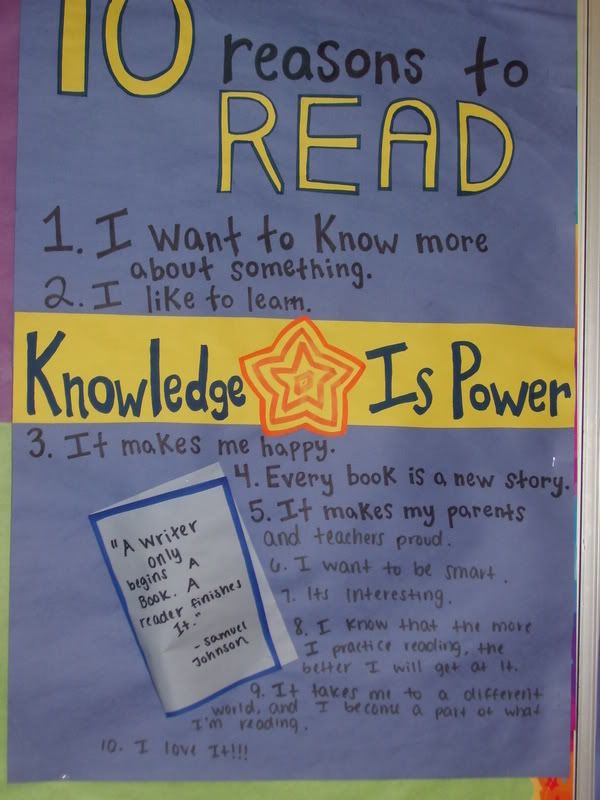 10 reasons to
READ
1. I want to Know more
about something.
2. I like to learn.
Knowledge Is Power
3. It makes me happy.
4. Every book is a new story.
5. It makes my parents
and teachers proud.
6. I want to be smart.
7. Its Interesting.
8. I know that the more
I practice reading, the
better I will get at it.
9. It takes me to a different
world, and I become a part of what
I'm reading.
10. I love It!!!
"A writer
only
begins A
Book. A
reader finishes
It."
- Samuel
Johnson